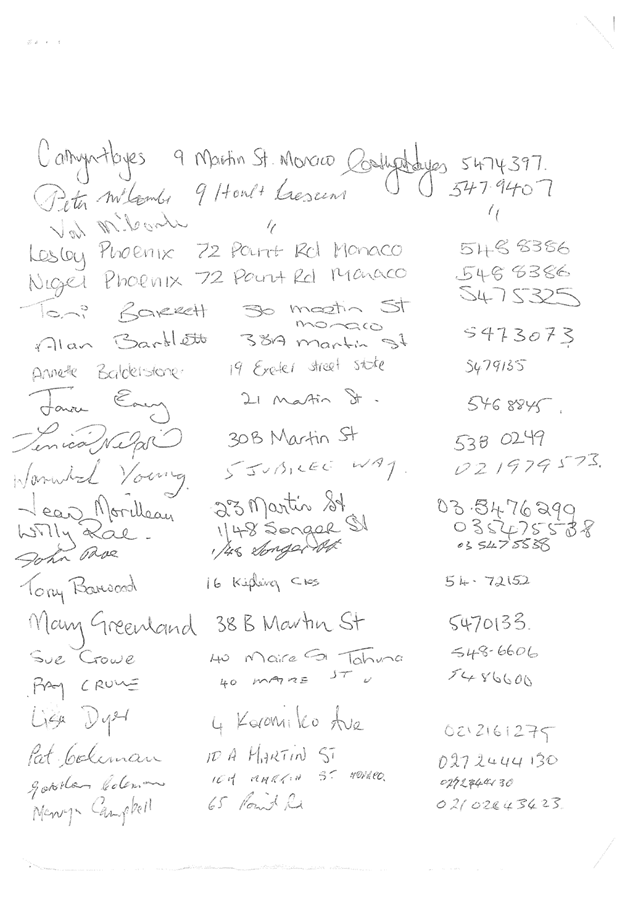 Cathryn Hayes 9 Martin St. Monaco 5474397.
Peter 9 Hoult Crescent 547.9407
Val "  "
Lesley Phoenix 72 Point Rd Monaco 548 8386
Nigel Phoenix 72 Point Rd Monaco 548 8386
Toni Barrett 30 Martin St 5475325
Monaco
Alan Bartlett 38A Martin St 5473073
Annette Balderstone. 19 Exeter Street Stoke 5479135
21 Martin St. 5468845.
30B Martin St 538 0249
Young 5 JUBILEE WAY. 021979573.
Jean Morilleau 23 Martin St 03.5476299
Willy Rae. 1/48 Songer St 035475538
John Rae 1/48 Songer St 03 5475538
Tony Barwood 16 Kipling Cres 54-72152
Mary Greenland 38 B Martin St 5470133.
Sue Crowe 40 Maire St Tahuna 548-6606
RAY CROWE 40 MAIRE ST " 5486606
Lisa Dyer 4 Koromiko Ave 0212161275
Pat Coleman 10 A MARTIN ST 0272444130
Coleman 10A MARTIN ST MONACO. 0272444130
Mervyn Campbell 65 Point Rd 02102843623